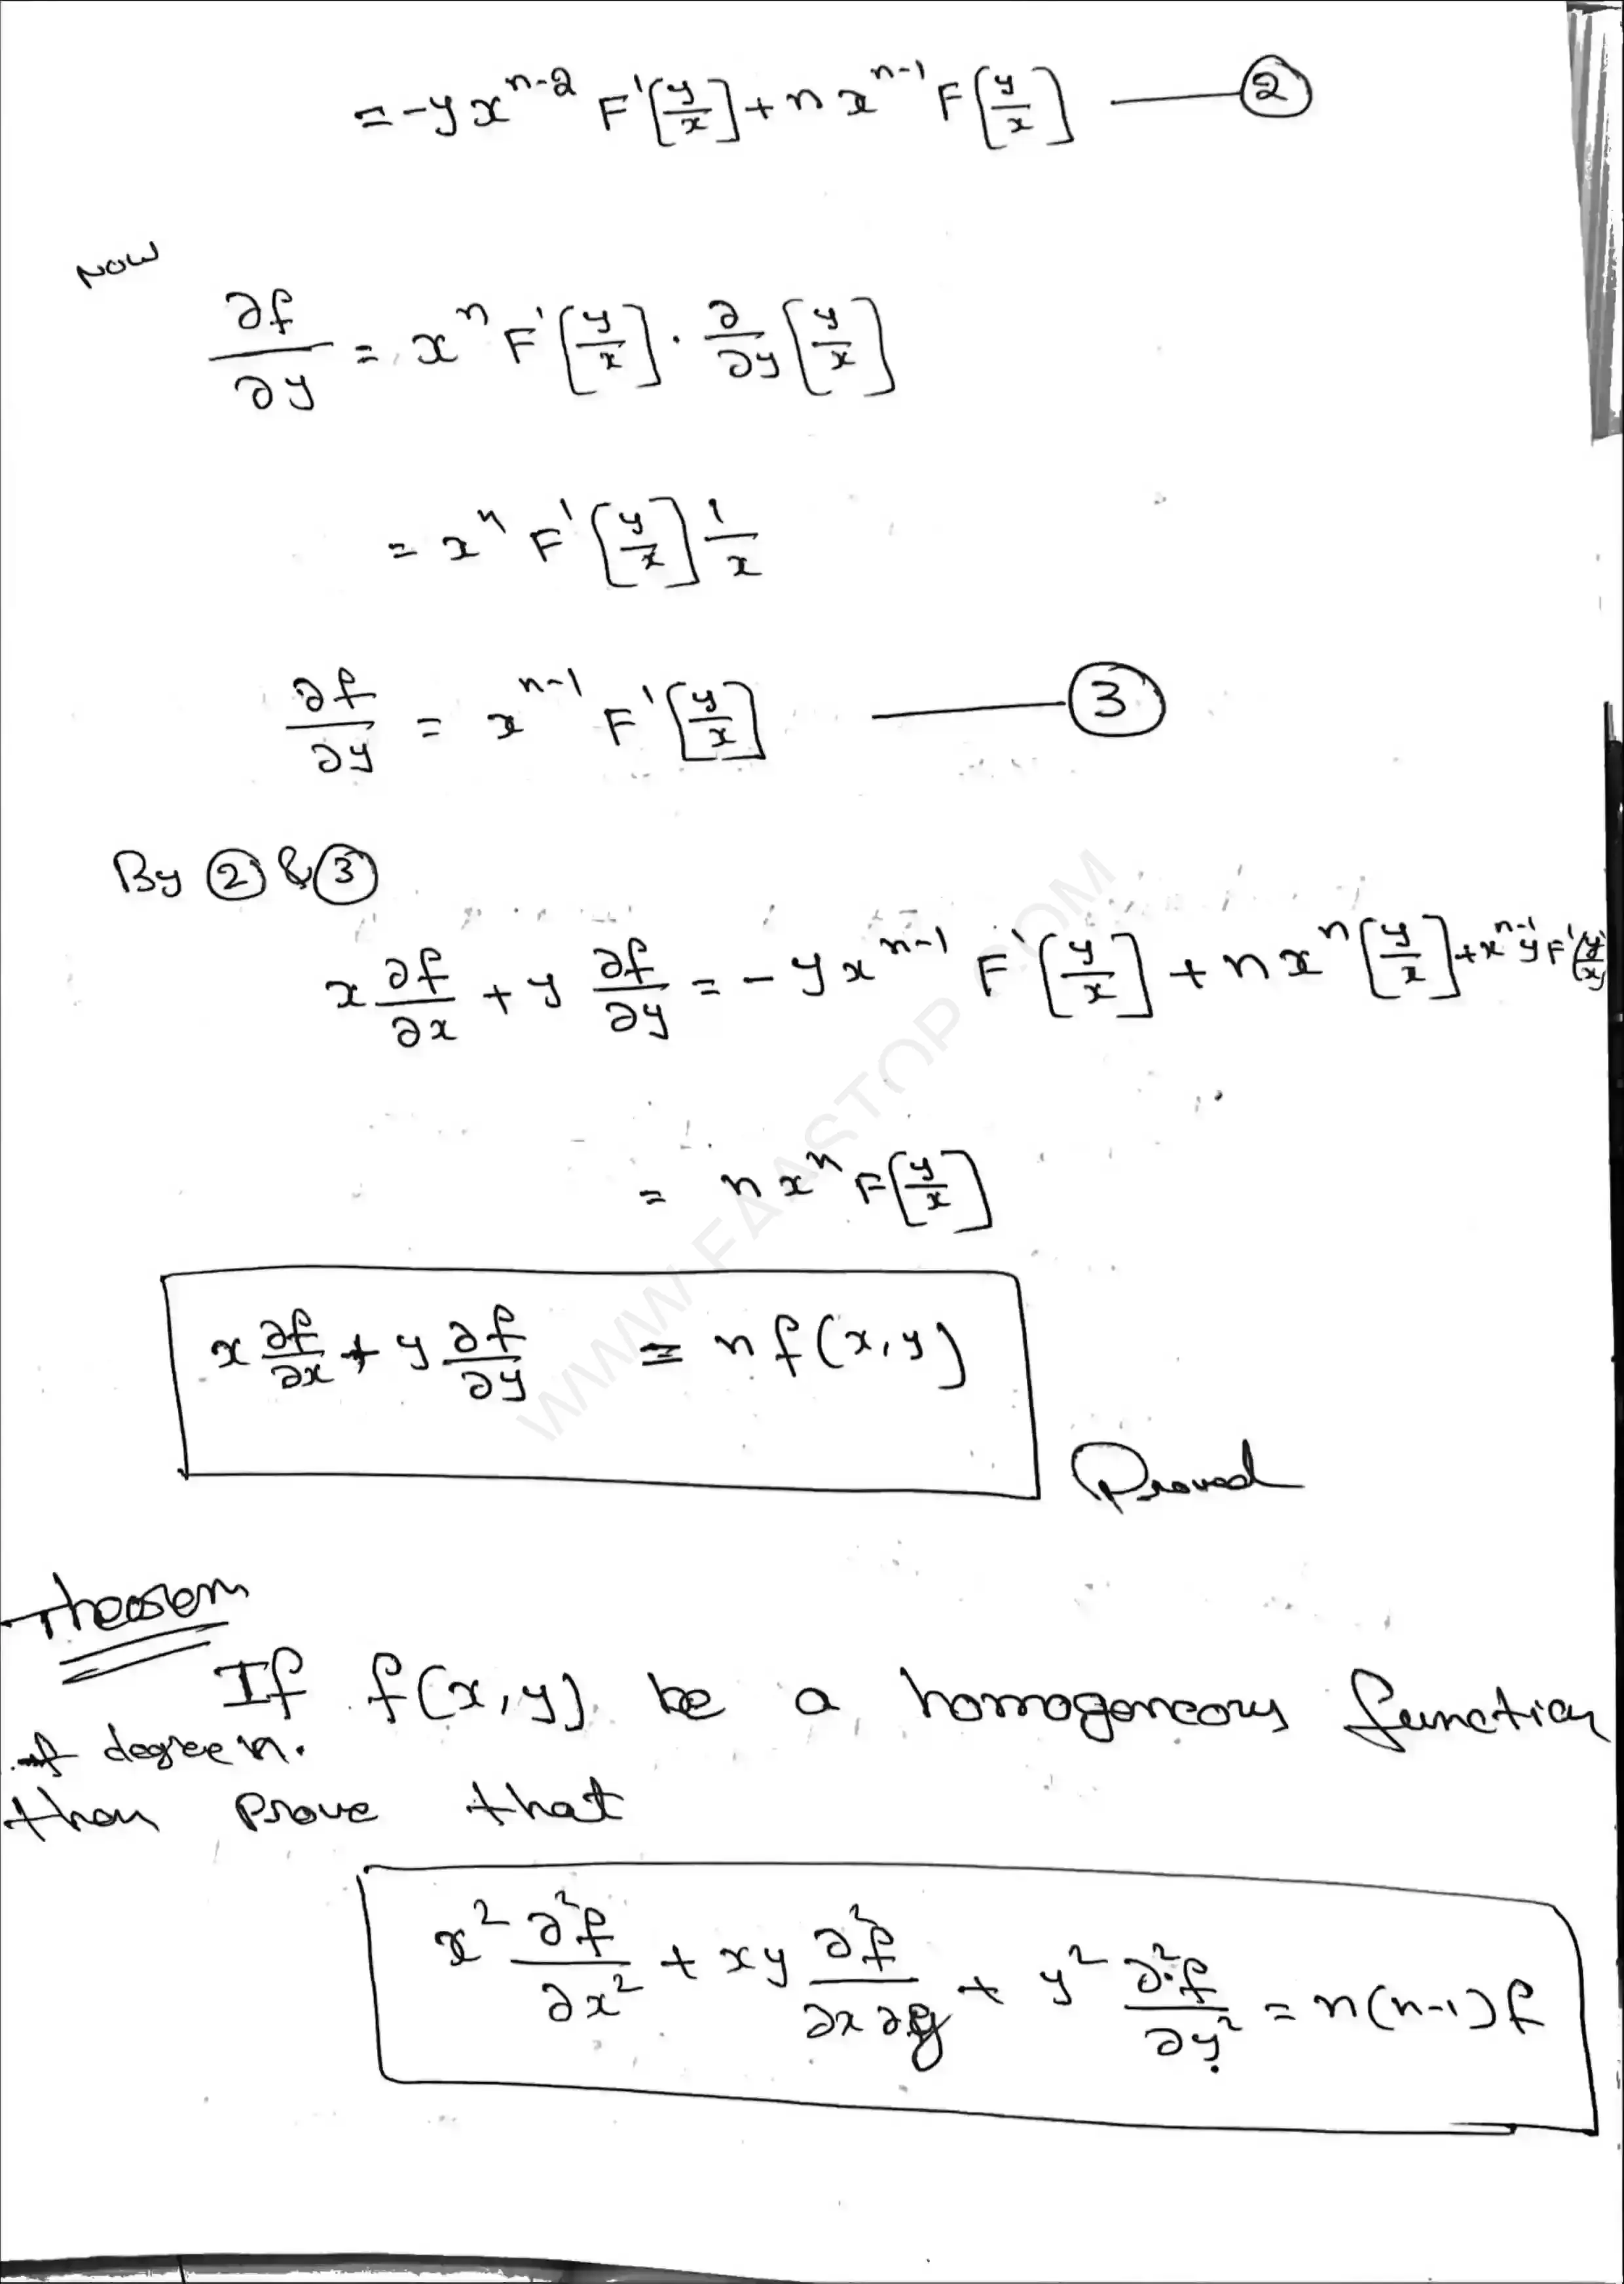 = -y x^{n-2} F'[y/x] + n x^{n-1} F[y/x] —— ②
Now
∂f/∂y = x^n F'[y/x] · ∂/∂y [y/x]
= x^n F'[y/x] 1/x
∂f/∂y = x^{n-1} F'[y/x] —— ③
By ② & ③
x ∂f/∂x + y ∂f/∂y = -y x^{n-1} F'[y/x] + n x^n [y/x] + x^{n-1} y F'[y/x]
= n x^n F[y/x]
x ∂f/∂x + y ∂f/∂y = n f(x,y)
Proved
Theorem
If f(x,y) be a homogeneous function
of degree n.
then prove that
x² ∂²f/∂x² + xy ∂²f/∂x∂y + y² ∂²f/∂y² = n(n-1)f
WWW.FAASTOP.COM